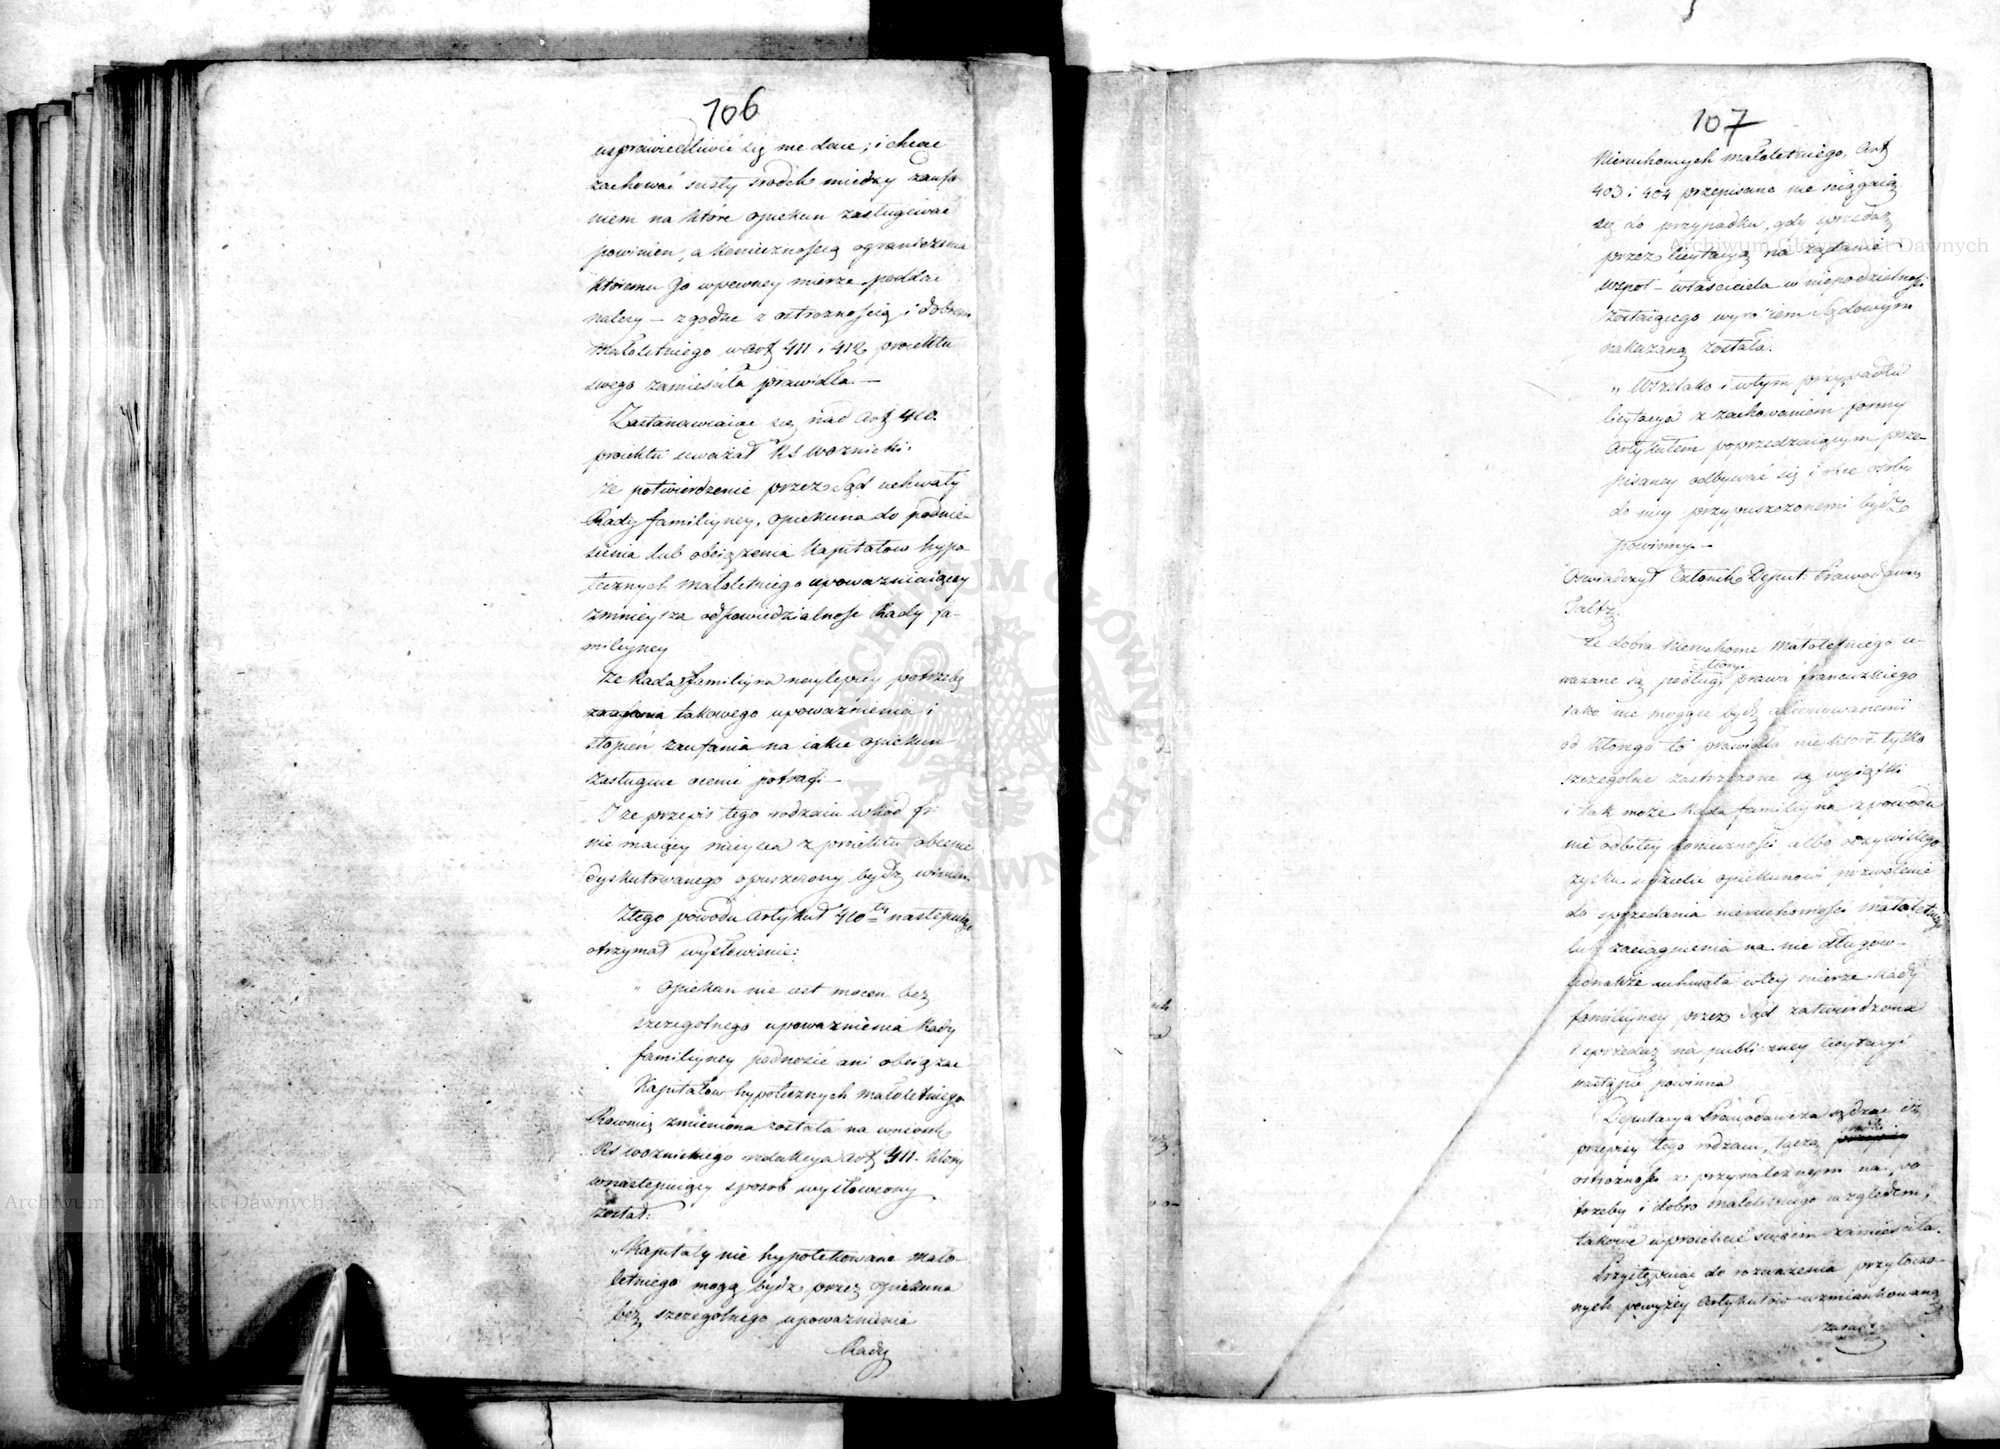 106
usprawiedliwić się nie daie; i chcąc
zachować ścisły środek między zaufa-
niem na które opiekun zasługiwać
powinien, a koniecznością ograniczenia
któremu go w pewney mierze poddać
należy — zgodne z ostrożnością i dobrem
małoletniego w Art 411 i 412 proiektu
swego zamieściła prawidła. —
Zastanawiaiąc się nad Art 410.
proiektu uważał RS Woznicki:
że potwierdzenie przez Sąd uchwały
Rady familiyney, opiekuna do podnie-
sienia lub obciążenia Kapitałow hypo-
tecznych małoletniego upoważniaiącey
zmnieysza odpowiedzialność Rady fa-
miliyney
że Rada familiyna naylepiey potrzebę
takowego upoważnienia i
stopień zaufania na iakie opiekun
zasługuie ocenić potrafi. —
I że przepis tego rodzaiu w Kod fr:
nie maiący mieysca z proiektu obecnie
dyskutowanego opuszczony bydź winien.
Z tego powodu Artykuł 410ty następuiące
otrzymał wysłowienie:
„ Opiekun nie iest mocen bez
szczegolnego upoważnienia Rady
familiyney podnosić ani obciążać
Kapitałow hypotecznych małoletniego
Rownież zmieniona została na wniosek
RS Woznickiego redakcya Art 411. który
w następuiący sposób wysłowiony
został:
„Kapitały nie hypotekowane mało-
letniego mogą bydź przez opiekuna
bez szczegolnego upoważnienia
Rady
107
Nieruchomych małoletniego, Art
403 i 404 przepisane nie ściągaią
się do przypadku, gdy sprzedaż
przez licytacyą na żądanie
wspoł-właściciela w niepodzielności
zostaiącego wyrokiem Sądowym
nakazaną została.
„ Wszelako i w tym przypadku
licytacya z zachowaniem formy
Artykułem poprzedzaiącym prze-
pisaney odbywać się i obce osoby
do niey przypuszczonemi bydź
powinny. —
Oświadczył Członek Deput: Prawodawczey
że dobra nieruchome małoletniego u-
ważane są podług prawa francuzkiego
iako nie mogące bydź alienowanemi
od którego to prawidła niektóre tylko
szczegolne zastrzeżone są wyiątki
i tak może Rada familiyna z powodu
nie odbitey konieczności albo oczywistego
zysku udzielić opiekunowi pozwolenie
do sprzedania nieruchomości małoletniego
lub zaciągnienia na nie długow —
iednakże uchwała w tey mierze Rady
familiyney przez Sąd zatwierdzona
i sprzedaż na publiczney licytacyi
nastąpić powinna
Deputacya Prawodawcza sądząc iż
przepisy tego rodzaiu, łączą
ostrożności z przynależnym na po-
trzeby i dobro małoletniego względem,
takowe w proiekcie swoiem zamieściła.
Przystępuiąc do rozważenia przytoczo-
nych powyżey Artykułów wzmiankowany
Archiwum Główne Akt Dawnych
Archiwum Główne Akt Dawnych
ARCHIWUM GŁÓWNE AKT DAWNYCH